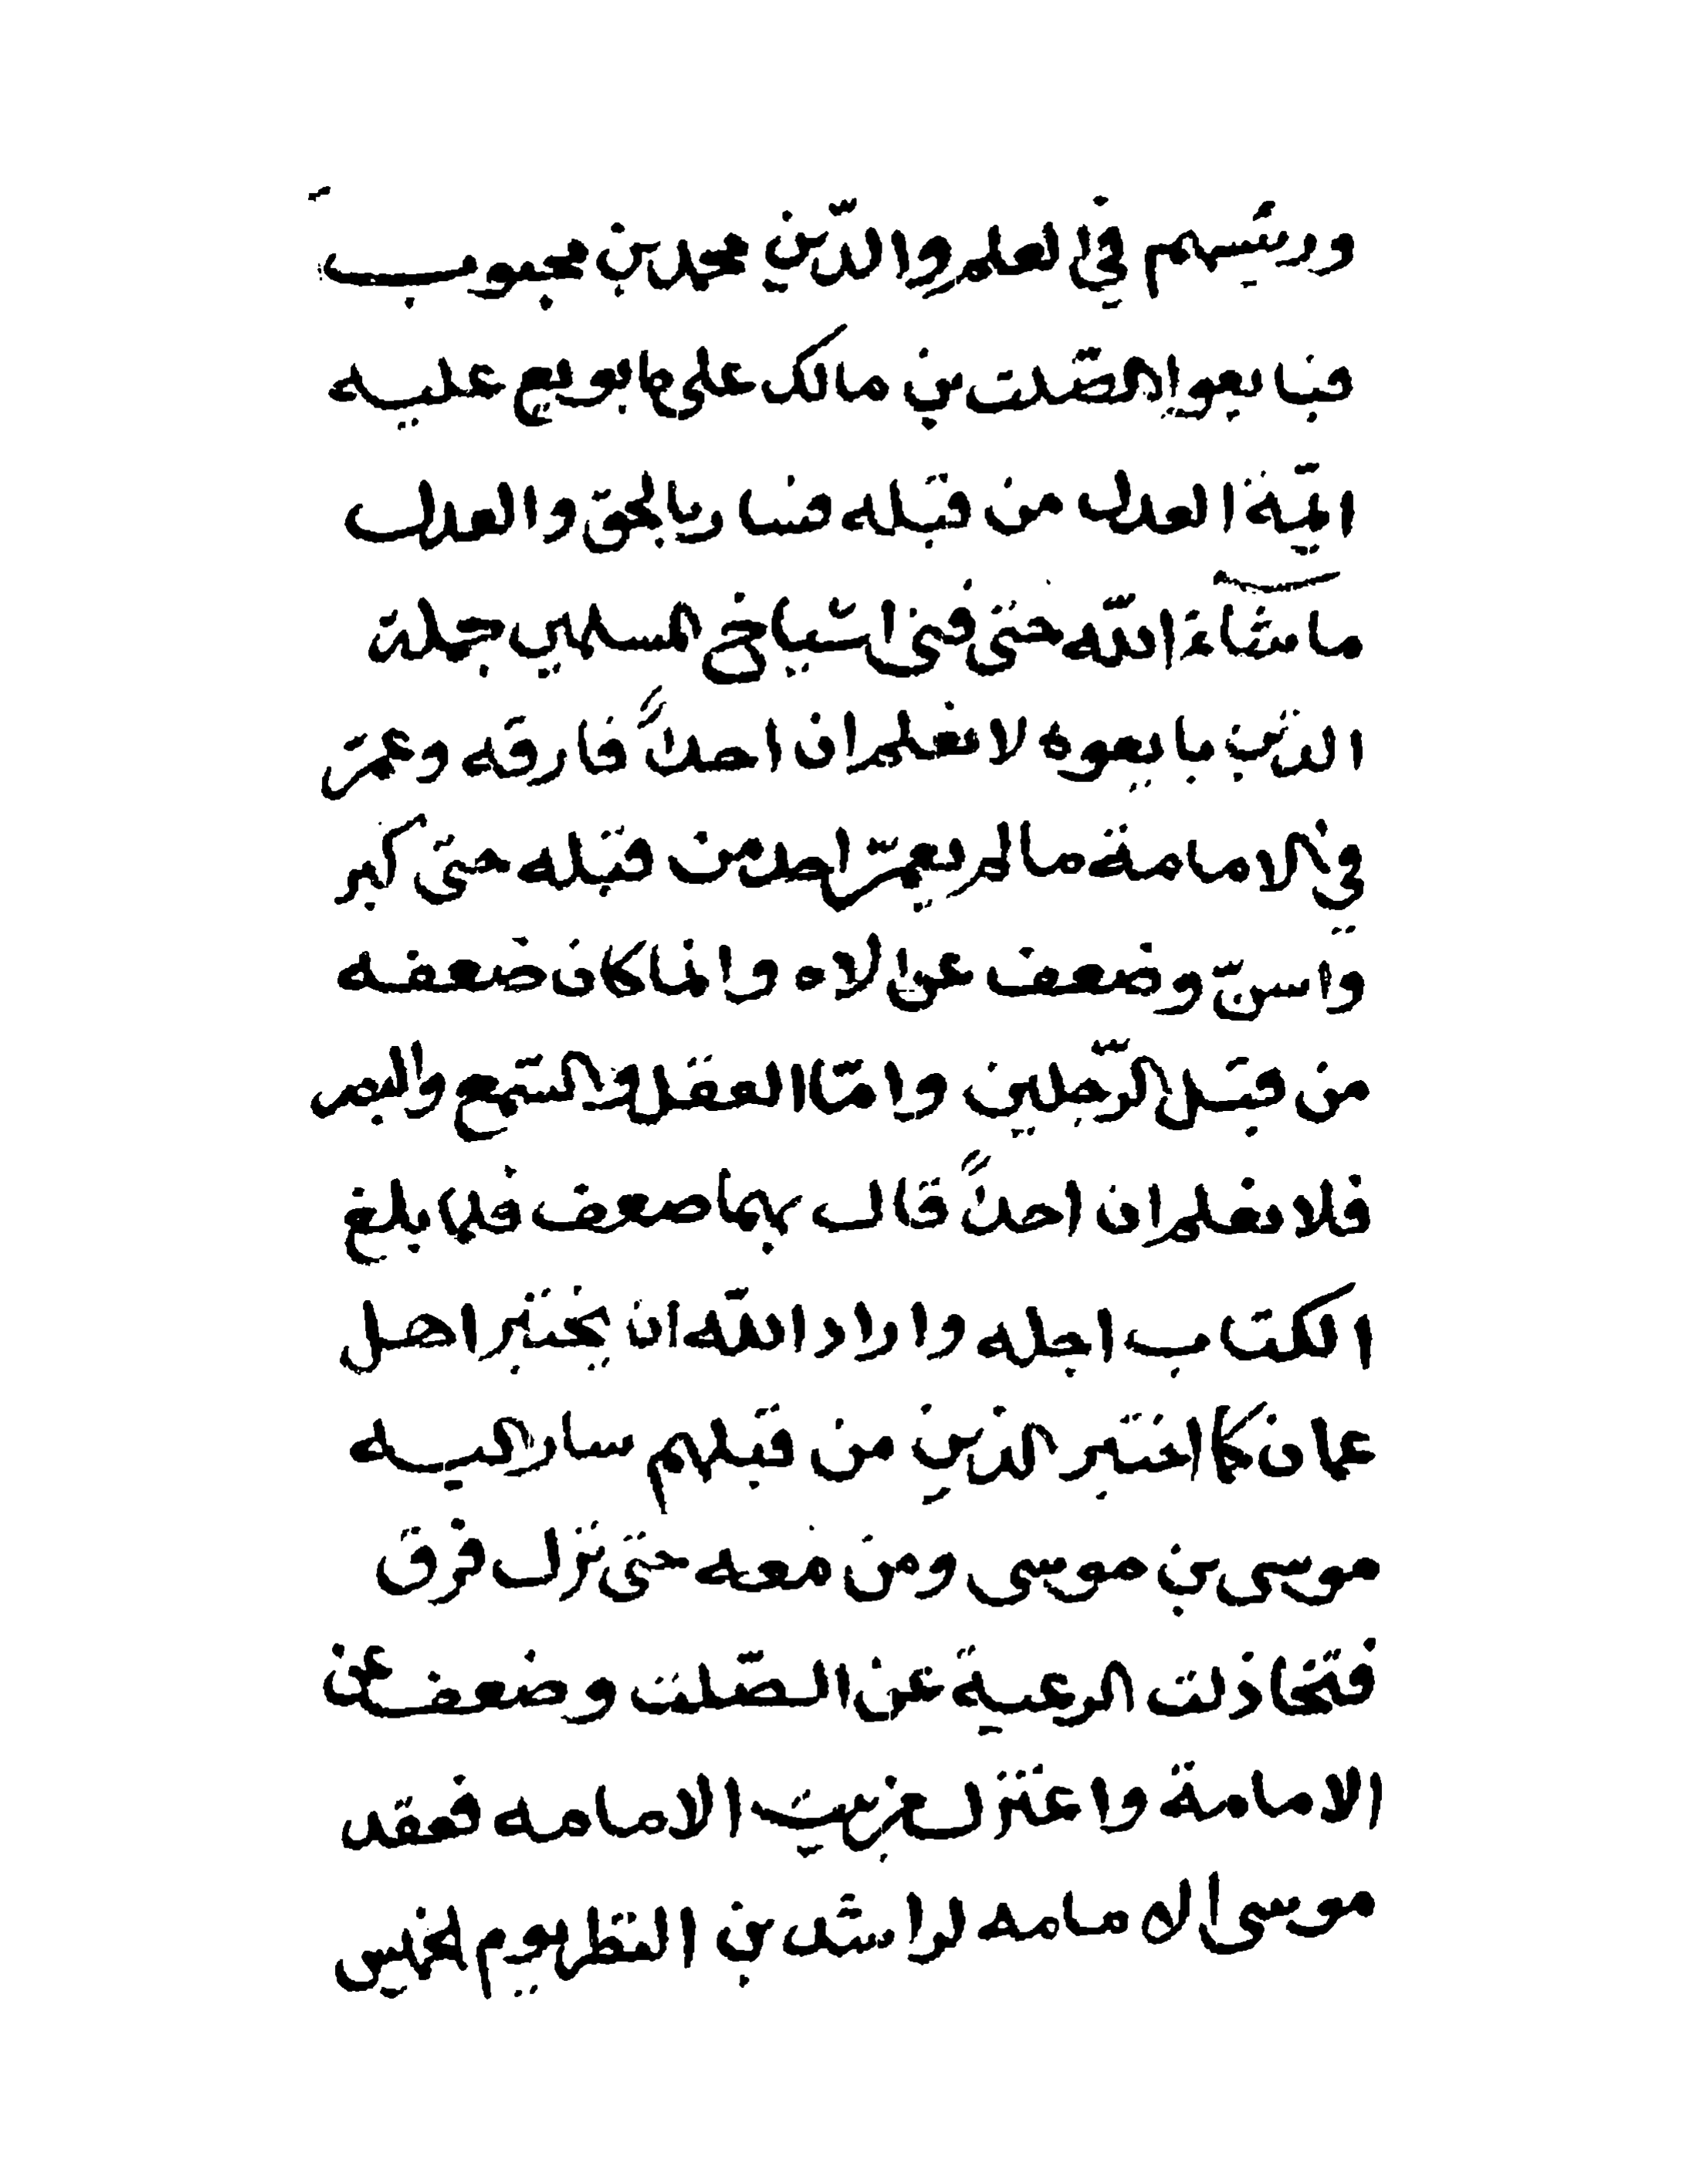 ورئيسهم في العلم والدّين محمد بن محبوب
فبايعوا الصّلت بن مالك على ما بويع عليه
ائمّة العدل من قبله فسار بالحق والعدل
ما شآء الله حتى فنى اشياخ المسلمين جملة
الذين بايعوه لا نعلم ان احداً فارقه وعمّر
في الامامة ما لم يعمّر احد من قبله حتى كبر
واسنّ وضعف عن الاه وانما كان ضعفه
من قبل الرّجلين وامّا العقل والسّمع والبصر
فلا نعلم ان احداً قال بهما ضعف فلما بلغ
الكتاب اجله واراد الله ان يختبر اهل
عمان كما اختبر الذين من قبلهم سار اليه
موسى بن موسى ومن معه حتى نزل فرق
فتخاذلت الرعية عن الصّلت وضعف عن
الامامة واعتزل عن بيت الامامه فعقد
موسى الامامه لراشد بن النظر يوم الخميس